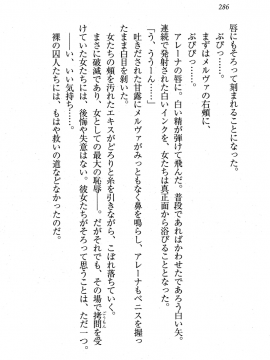 286
唇にもそろって刻まれることになった。
ぶぴぴっ……。
まずはメルヴァの右頬に、
ぶぴぴっ……。
アレーナの唇に。白い精が弾けて飛んだ。普段であればかわせたであろう白い矢。
連続で発射された白インクを、女たちは真正面から浴びることとなった。
「う、ううーん……」
吐きだされた甘露にメルヴァがみっともなく鼻を鳴らし、アレーナもペニスを握っ
たまま白目を剥いた。
女たちの頬を汚れたエキスがどろりと糸を引きながら、こぼれ落ちていく。
まさに破滅であり、女としての最大の恥辱――。だがそれでも、その場で拷問を受
けていた女たちには、後悔や失意はない。彼女たちがそろって思うことは、ただ一つ。
――い、いい気持ち……。
裸の囚人たちには、もはや救いの道などなかったのだ。